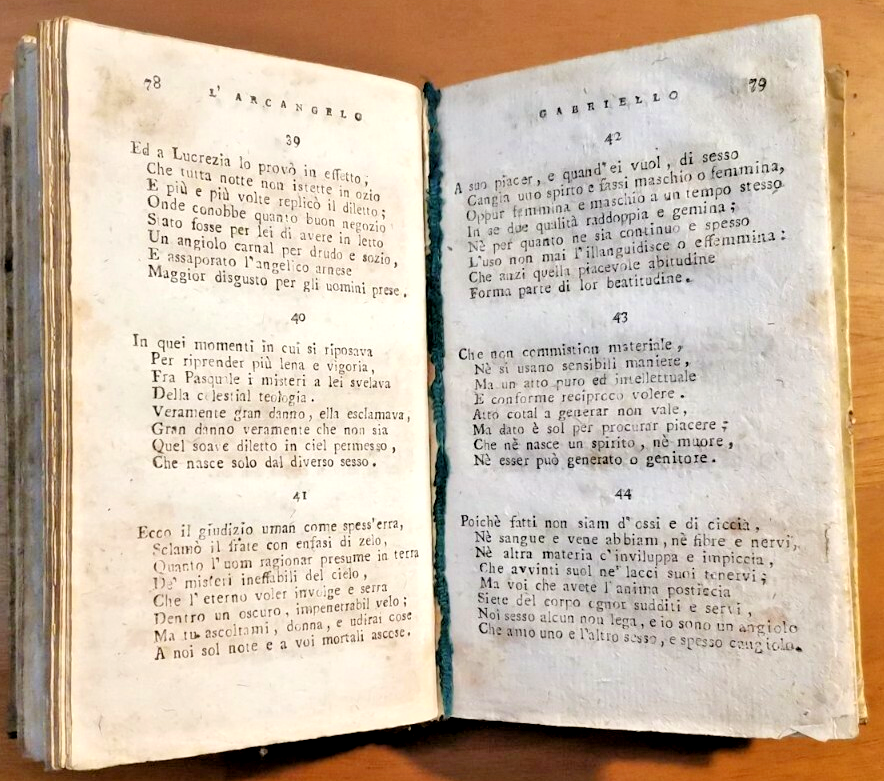 78
L' ARCANGELO
39
Ed a Lucrezia lo provò in effetto,
Che tutta notte non istette in ozio
E più e più volte replicò il diletto;
Onde conobbe quanto buon negozio
Stato fosse per lei di avere in letto
Un angiolo carnal per drudo e sozio,
E assaporato l'angelico arnese
Maggior disgusto per gli uomini prese.
40
In quei momenti in cui si riposava
Per riprender più lena e vigoria,
Fra Pasquale i misteri a lei svelava
Della celestial teologia.
Veramente gran danno, ella esclamava,
Gran danno veramente che non sia
Quel soave diletto in ciel permesso,
Che nasce solo dal diverso sesso.
41
Ecco il giudizio uman come spess'erra,
Sclamò il frate con enfasi di zelo,
Quanto l'uom ragionar presume in terra
De' misteri ineffabili del cielo,
Che l'eterno voler involge e serra
Dentro un oscuro, impenetrabil velo;
Ma tu ascoltami, donna, e udirai cose
A noi sol note e a voi mortali ascose.
79
GABRIELLO
42
A suo piacer, e quand' ei vuol, di sesso
Cangia uno spirto e fassi maschio o femmina,
Oppur femmina e maschio a un tempo stesso
In se due qualità raddoppia e gemina;
Nè per quanto ne sia continuo e spesso
L'uso non mai l'illanguidisce o effemmina:
Che anzi quella piacevole abitudine
Forma parte di lor beatitudine.
43
Che non commistion materiale,
Nè si usano sensibili maniere,
Ma un atto puro ed intellettuale
E conforme reciproco volere.
Atto cotal a generar non vale,
Ma dato è sol per procurar piacere;
Che nè nasce un spirito, nè muore,
Nè esser può generato o genitore.
44
Poichè fatti non siam d' ossi e di ciccia,
Nè sangue e vene abbiam, nè fibre e nervi,
Nè altra materia c'inviluppa e impiccia,
Che avvinti suol ne' lacci suoi tenervi;
Ma voi che avete l'anima posticcia
Siete del corpo ognor sudditi e servi,
Noi sesso alcun non lega, e io sono un angiolo
Che amo uno e l'altro sesso, e spesso cangiolo.